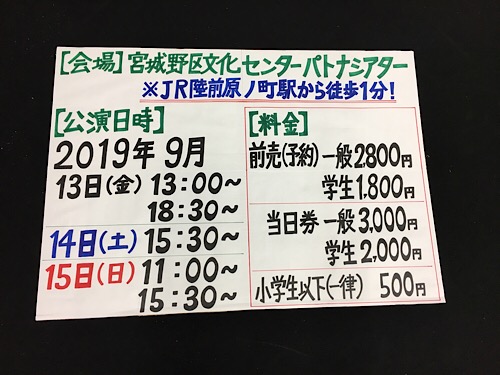 [会場] 宮城野区文化センターパトナシアター
※JR陸前原ノ町駅から徒歩1分!
[公演日時]
2019年 9月
13日(金) 13:00~
18:30~
14日(土) 15:30~
15日(日) 11:00~
15:30~
[料金]
前売(予約) 一般 2,800円
学生 1,800円
当日券 一般 3,000円
学生 2,000円
小学生以下(一律) 500円